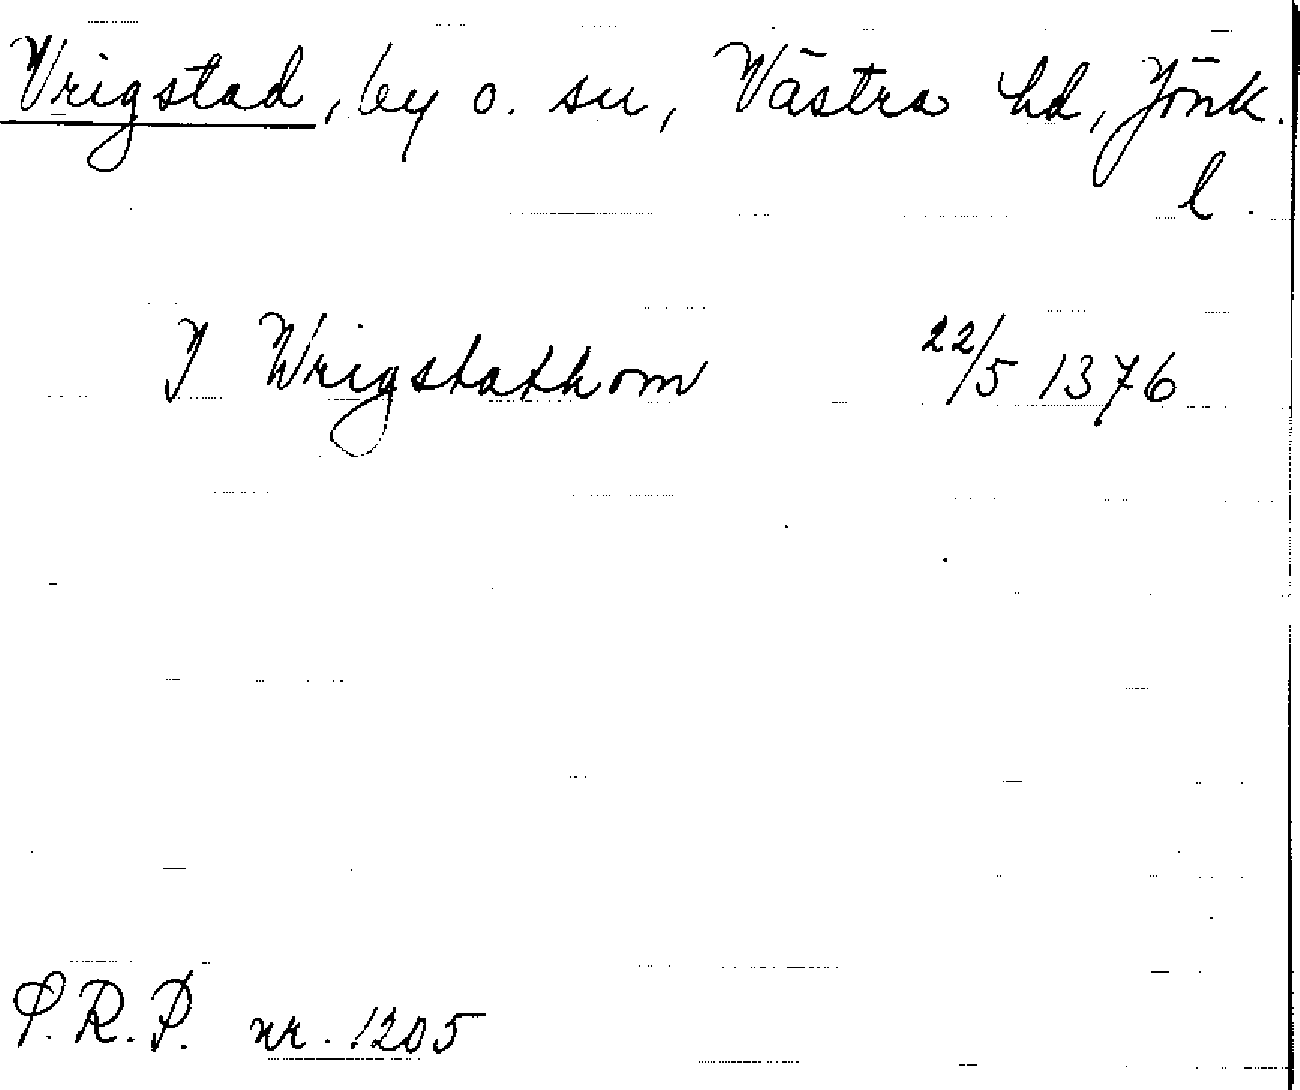 Vrigstad, by o. sn, Västra hd, Jönk.
l.
J Wrigstathom 22/5 1376
S.R.P. nr. 1205